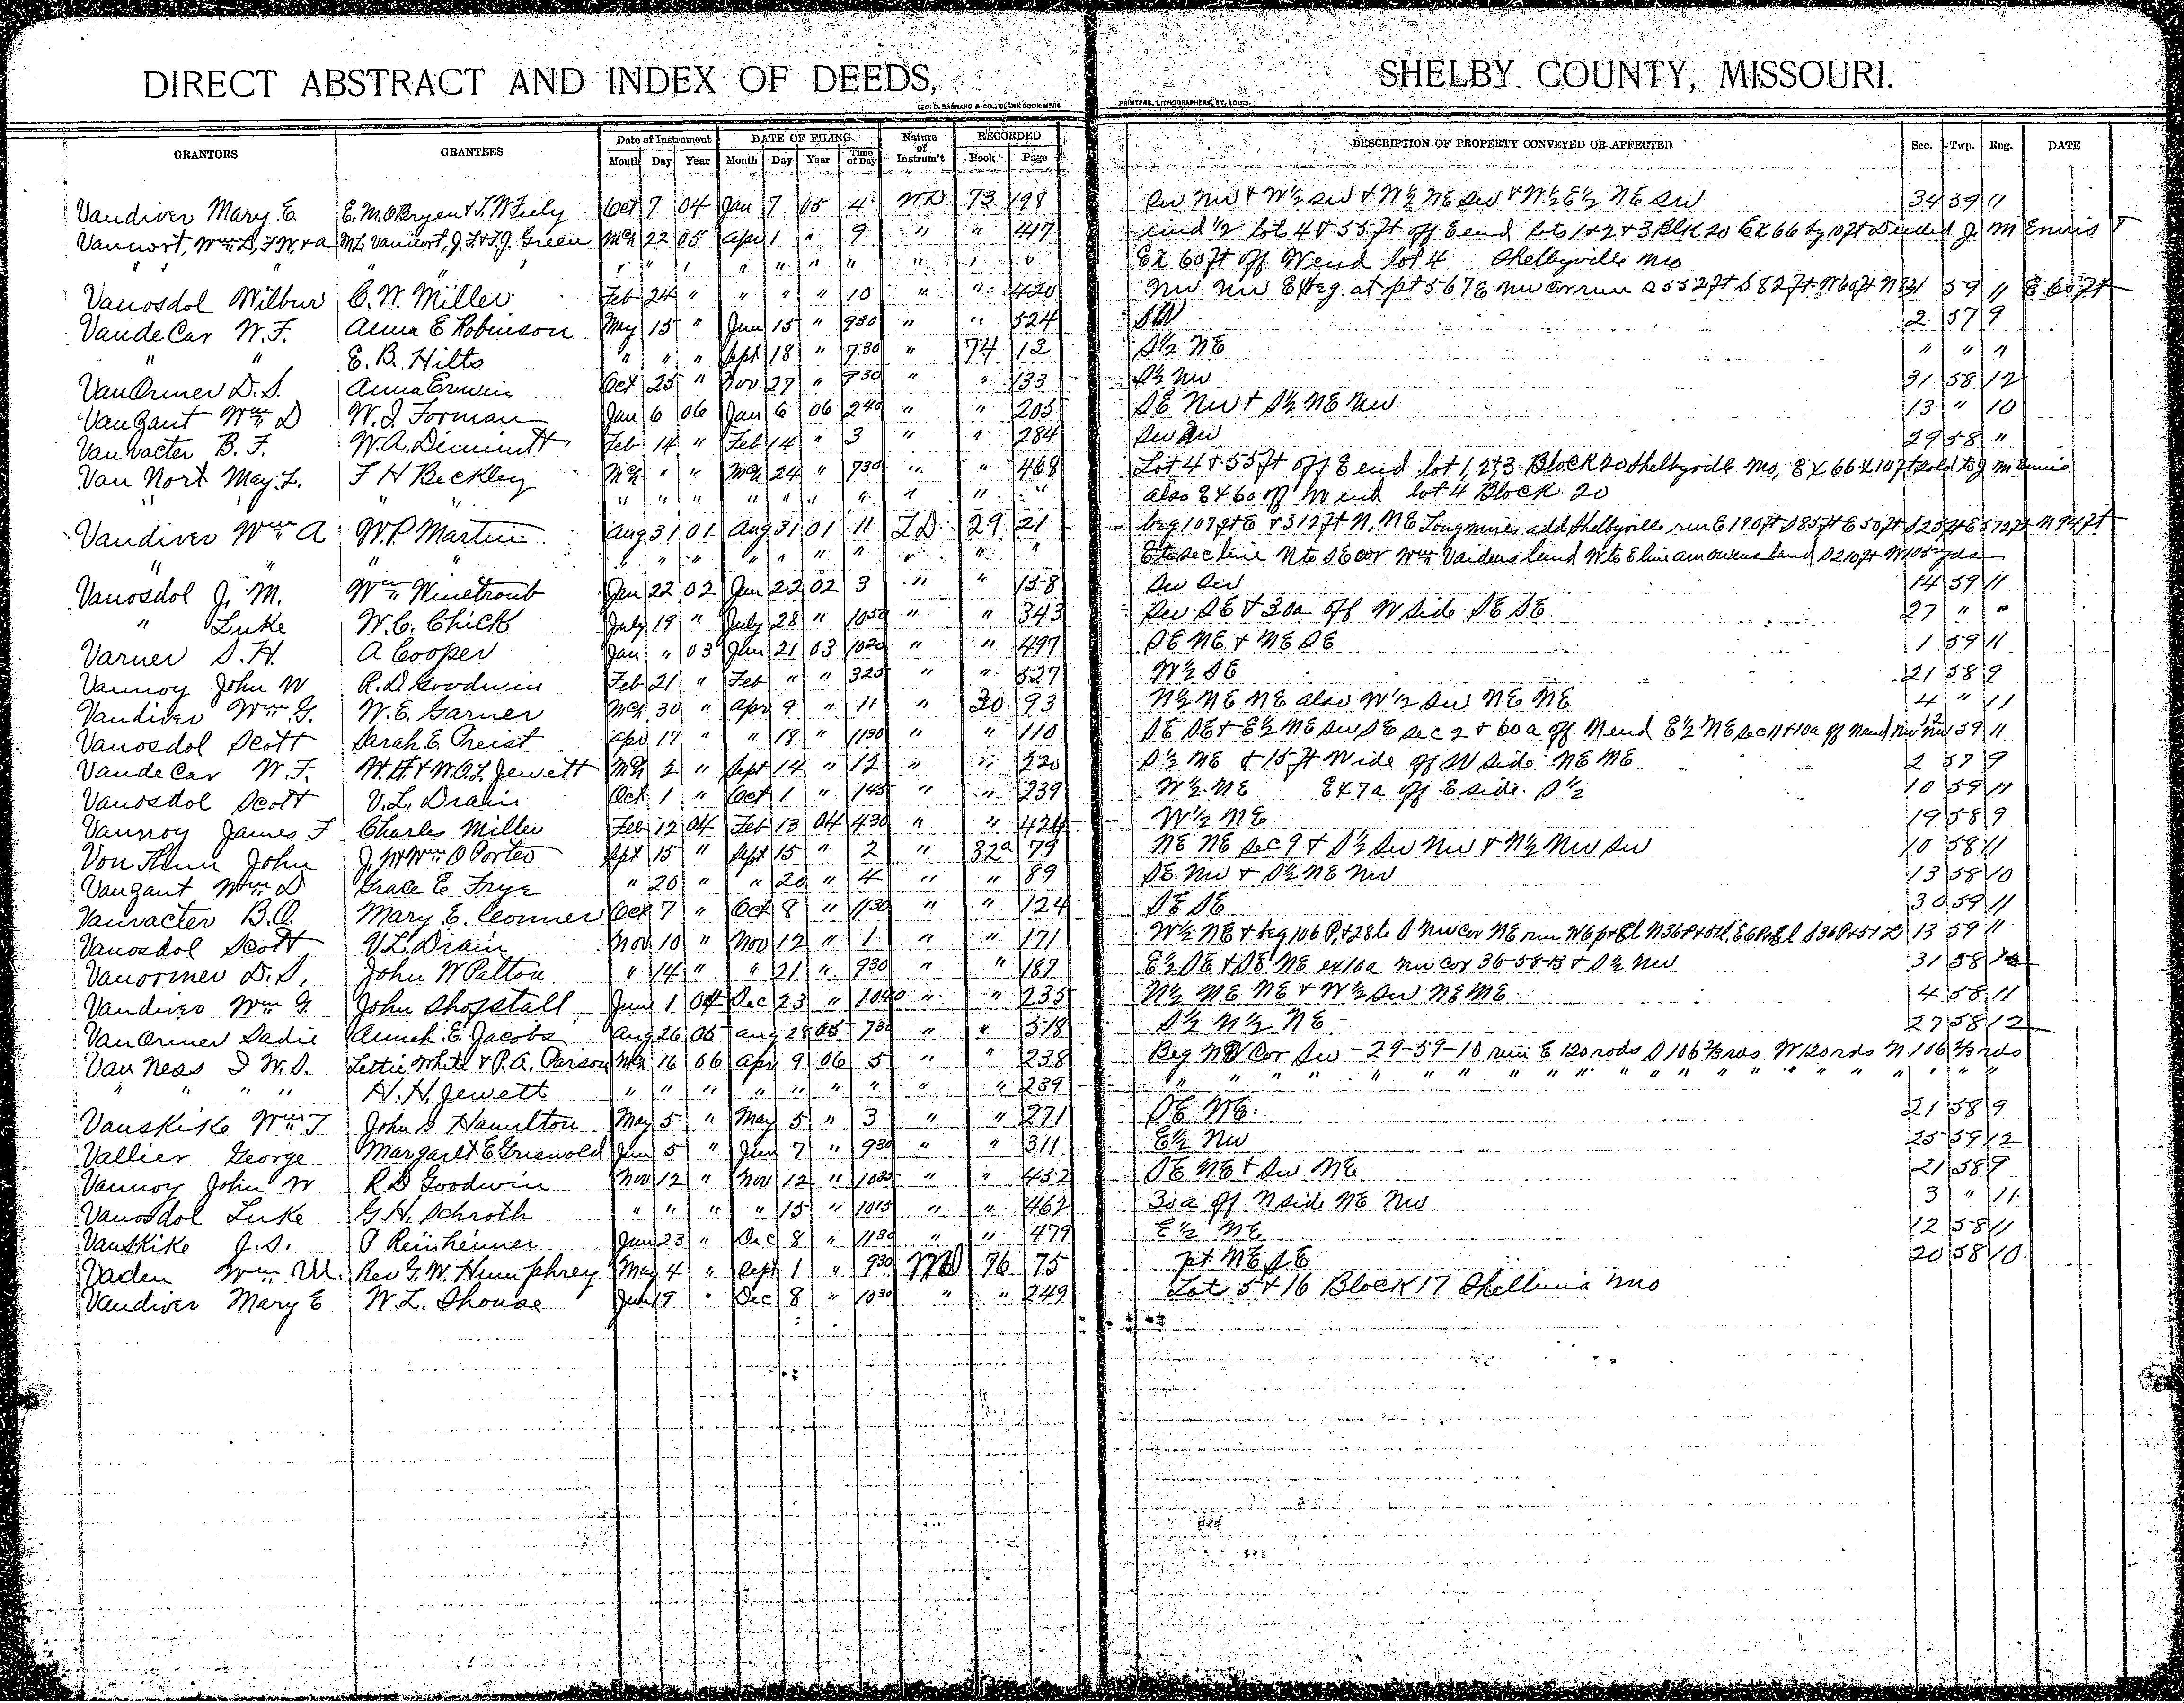 DIRECT ABSTRACT AND INDEX OF DEEDS, SHELBY COUNTY, MISSOURI.
GEO. D. BARNARD & CO., BLANK BOOK MFRS PRINTERS, LITHOGRAPHERS, ST. LOUIS.
GRANTORS GRANTEES Date of Instrument DATE OF FILING Nature of Instrum't. RECORDED DESCRIPTION OF PROPERTY CONVEYED OR AFFECTED Sec. Twp. Rng. DATE
Month Day Year Month Day Year Time of Day Book Page
Vandiver Mary E Oct 7 04 Jan 7 05 4 WD 73 198 Sw Nw & W½ Sw & W½ NE Sw & W½ E½ NE Sw 34 59 11
Vannort, Wm D, F.W. & a M.L. Vannort, J.F. & T.J. Green Mch 22 05 Apr 1 " 9 " " 417 und ½ lot 4 & 55 ft off E end lots 1 & 2 & 3 Blk 20 Ex 66 by 10 ft Deeded J. M Ennis &
" " " " " " " " " " " " " " " Ex 60 ft off W end lot 4 Shelbyville Mo
Vanosdol Wilbur C. W. Miller Feb 24 " " " " 10 " " 420 Nw Nw Ex beg. at pt 567 E Nw cor run S 552 ft S 82 ft W 60 ft N 59 11 E 60 ft
VandeCar W. F. Anna E Robinson May 15 " Jun 15 " 930 " " 524 SW 2 57 9
" " E. B. Hilts " " " Sept 18 " 730 " 74 12 S½ NE " " "
VanOrmer D. S. Anna Erwin Oct 25 " Nov 27 " 930 " " 133 S½ Nw 31 58 12
Vangant Wm D W. J. Forman Jan 6 06 Jan 6 06 240 " " 205 SE Nw & S½ NE Nw 13 " 10
Vanvacter B. F. W. A. Dimmitt Feb 14 " Feb 14 " 3 " " 284 Sw 29 58 "
Van Nort May L. F H Beckley Mch " " Mch 24 " 730 " " 468 Lot 4 & 55 ft off E end lot 1, 2 & 3 Block 20 Shelbyville Mo, Ex 66 X 10 ft sold to J M Ennis
" " " " " " " " " " " " " " also Ex 60 off W end lot 4 Block 20
Vandiver Wm A W. P. Martin Aug 31 01 Aug 31 01 11 29 21 beg 107 ft E & 312 ft N, NE Longmires add Shelbyville run E 190 ft S 85 ft E 50 ft S 25 ft E 572 ft N 94 ft
" " " " " " " " " " " " " E to sec line N to SE cor Wm Vaidens land W to E line am Owens land S 210 ft W 105 yds
Vanosdol J. M. Wm Winetroub Jan 22 02 Jan 22 02 3 " " 158 Sw Sw 14 59 11
" Luke W. C. Chick July 19 " July 28 " 1050 " " 343 Sw SE & 30a off W side SE SE 27 " "
Varner S. H. A Cooper Jan " 03 Jan 21 03 1020 " " 497 SE NE & NE SE 1 59 11
Vannoy John W R. D. Goodwin Feb 21 " Feb " " 325 " " 527 W½ SE 21 58 9
Vandiver Wm G. W. E. Garner Mch 30 " Apr 9 " 11 " 30 93 N½ NE NE also W½ Sw NE NE 4 " 11
Vanosdol Scott Sarah E. Preist Apr 17 " " 18 " 1130 " " 110 SE SE & E½ NE Sw SE Sec 2 & 60 a off N end E½ NE Sec 11 & 10a off N end Nw Nw 12 59 11
VandeCar W. F. H. H. & W. O. L. Jewett Mch 2 " Sept 14 " 12 " " 220 S½ NE & 15 ft Wide off W side NE NE 2 57 9
Vanosdol Scott V. L. Drain Oct 1 " Oct 1 " 145 " " 239 W½ NE Ex 7a off E side S½ 10 59 11
Vannoy James F Charles Miller Feb 12 04 Feb 13 04 430 " " 424 W½ NE 19 58 9
Von Thun John J. W & Wm O Porter Sept 15 " Sept 15 " 2 " 32a 79 NE NE Sec 9 & S½ Sw Nw & N½ Nw Sw 10 58 11
Vangant Wm D Grace E Frye " 20 " " 20 " 4 " " 89 SE Nw & S½ NE Nw 13 58 10
Vanvacter B. O. Mary E. Conner Oct 7 " Oct 8 " 1130 " " 124 SE SE 30 59 11
Vanosdol Scott V. L. Drain Nov 10 " Nov 12 " 1 " " 171 W½ NE & beg 106 P. & 28 l. S Nw cor NE run 13 59 "
Vanormer D. S. John W Patton " 14 " " 21 " 930 " " 187 E½ SE & SE NE ex 10a Nw cor 36-58-13 & S½ Nw 31 58
Vandiver Wm G. John Shofstall June 1 04 Dec 23 " 1040 " " 235 N½ NE NE & W½ Sw NE NE 4 58 11
VanOrmer Sadie Annah E. Jacobs Aug 26 05 Aug 28 05 730 " " 318 S½ N½ NE 27 58 12
Van Ness I W. S. Lettie White & P. A. Parson Mch 16 06 Apr 9 06 5 " " 238 Beg NW Cor Sw - 29-59-10 run E 120 rods S 106⅔ rds W 120 rds N 106⅔ rds
" " " " H. H. Jewett " " " " " " " " " 239 " " " " " " " " " " " " " " "
Vanskike Wm T John S Hamilton May 5 " May 5 " 3 " " 271 SE NE. 21 58 9
Vallier George Margaret E Griswold Jun 5 " Jun 7 " 930 " " 311 E½ Nw 25 59 12
Vannoy John W R D Goodwin Nov 12 " Nov 12 " 1035 " " 452 SE NE & Sw NE 21 58 9
Vanosdol Luke G. H. Schroth " " " " 15 " 1015 " " 462 30a off N side NE Nw 3 " 11
Vanskike J. S. P Reinheimer Jun 23 " Dec 8 " 1130 " " 479 E½ NE 12 58 11
Vaden Wm M. Rev G. W. Humphrey May 4 " Sept 1 " 930 WD 76 75 pt NE SE 20 58 10
Vandiver Mary E W. L. Shouse Jun 19 " Dec 8 " 1030 " " 249 Lot 5 & 16 Block 17 Shelbina Mo